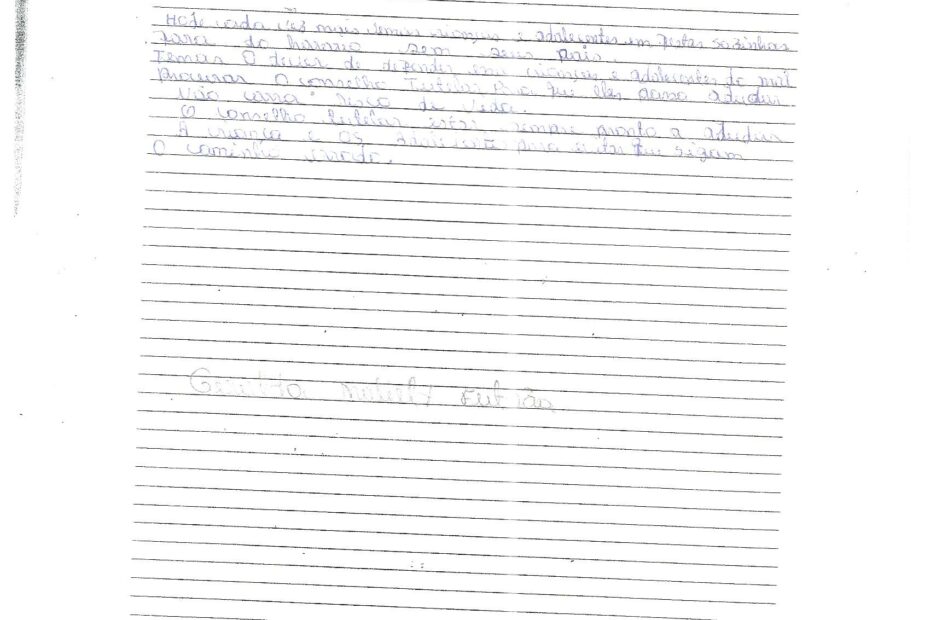 Hoje cada vez mais temos crianças e adolecentes em festas sozinhas
fora do horario sem seus pais.
Temos O dever de defender crianças e adolecentes do mal
procurar O conselho Tutelar Para que eles possa ajudar
risco de vida.
O conselho tutelar está sempre pronto a ajudar
A criança e os para evitar que sigam
O caminho errado.